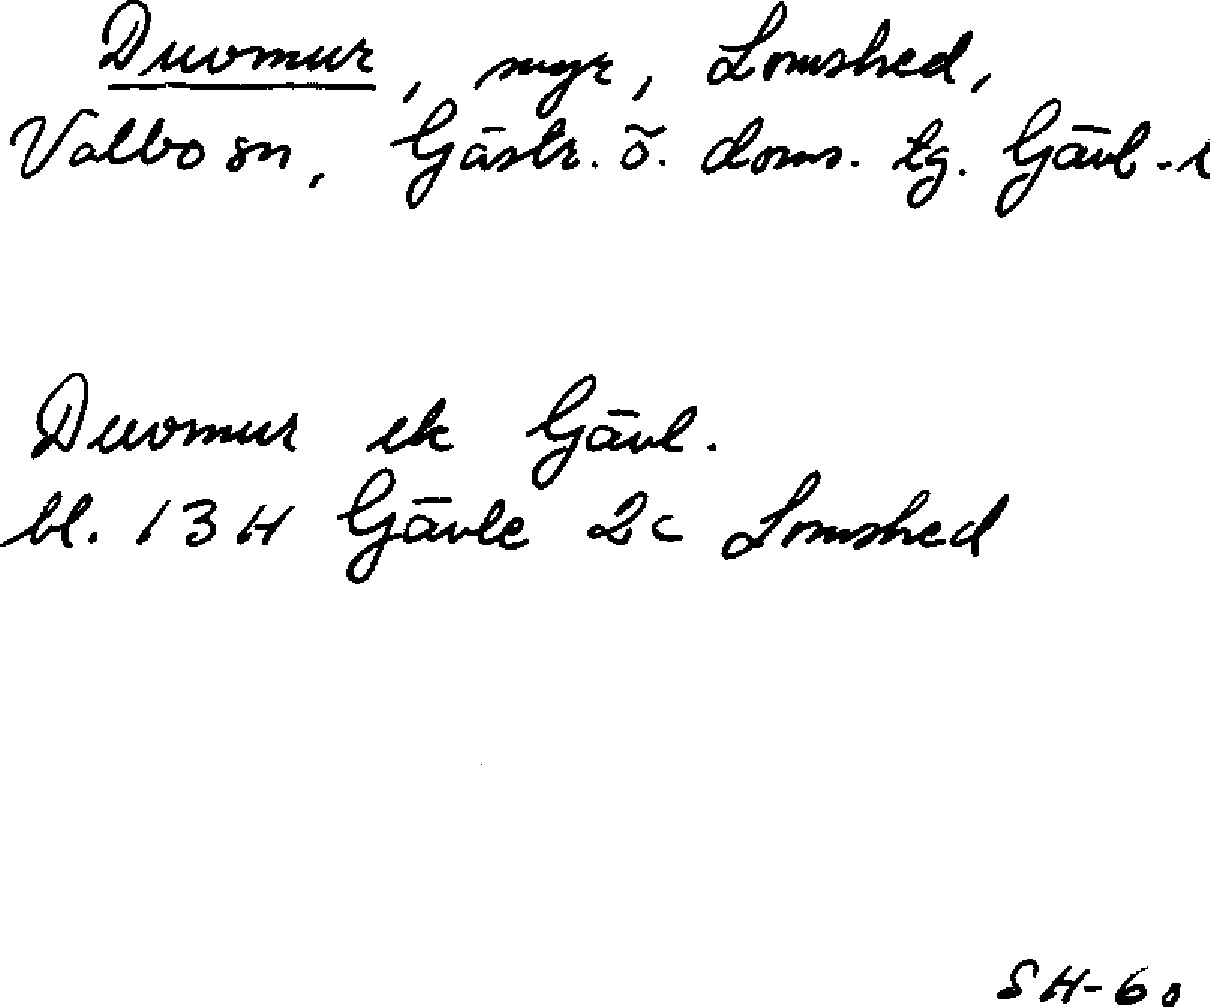 Duvmur, myr, Lomshed,
Valbo sn, Gästr. ö. doms. tg. Gävl-
Duvmur ek Gävl.
bl. 13H Gävle 2c Lomshed
SH-60